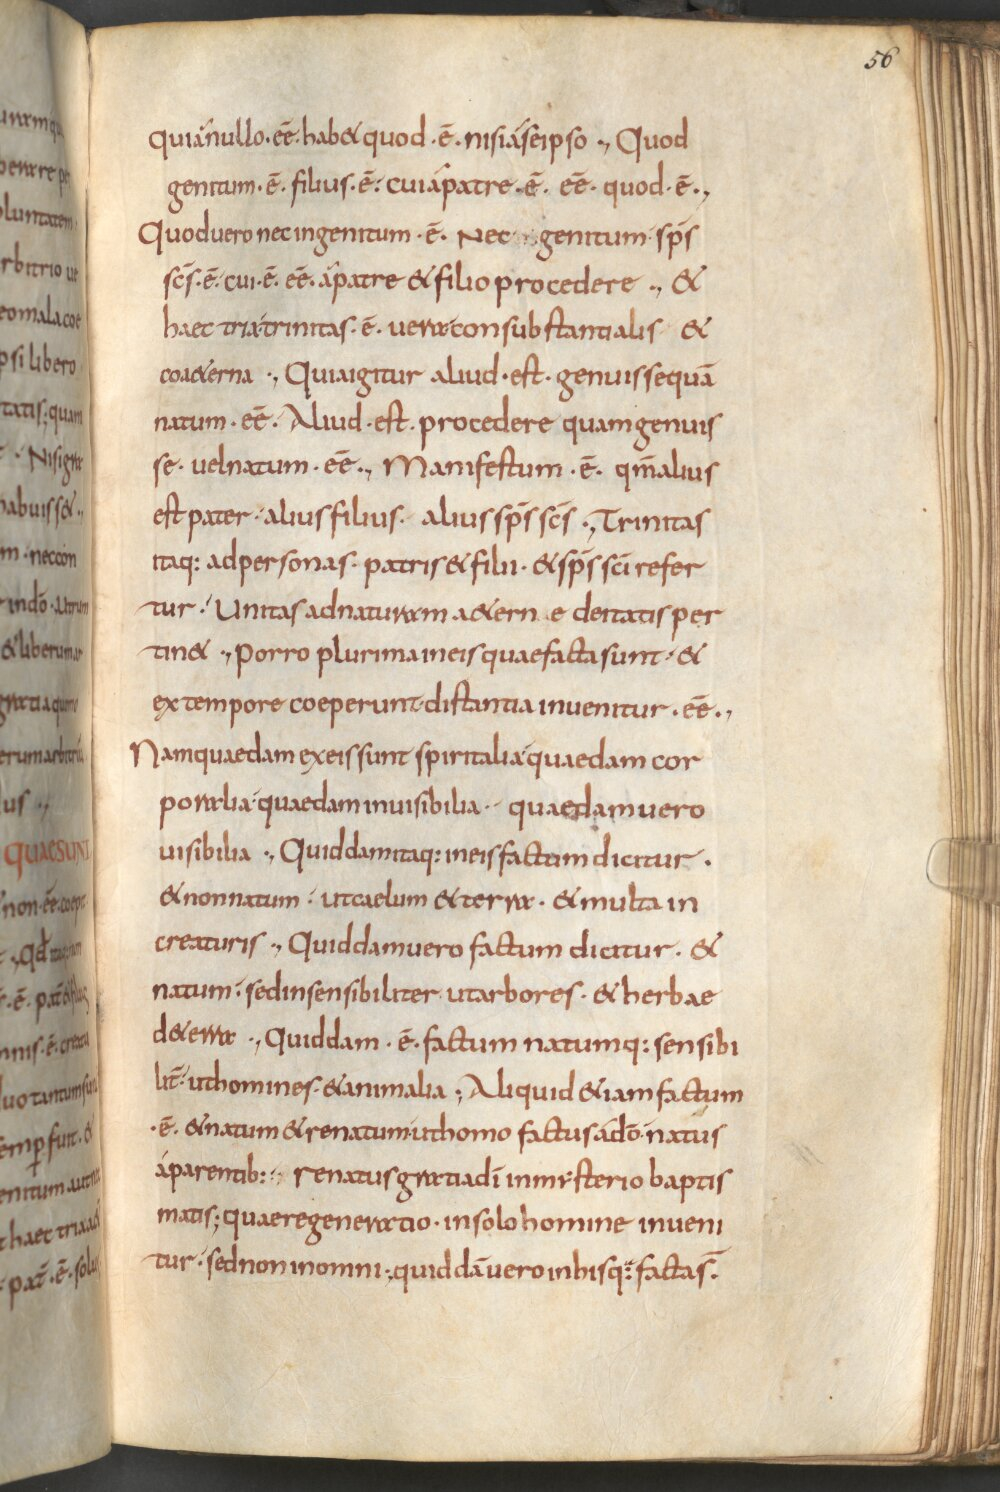 56
quia nullo · eē · hab& quod · ē · nisi a se ipso ·, Quod
genitum · ē · filius · ē · cui a patre · ē · eē · quod · ē ·,
Quod uero nec ingenitum · ē · Nec genitum · sp̄s
sc̄s · ē · cui · ē · eē · a patre & filio procedere ·, &
haec tria trinitas · ē · uera consubstantialis &
coa&erna ·, Quia igitur aliud · est · genuisse quā
natum · eē · Aliud · est · procedere quam genuis
se · uel natum · eē ·, Manifestum · ē · qm̄ alius
est pater · alius filius · alius sp̄s sc̄s ·, Trinitas
itaq: ad personas · patris & filii · & sp̄s sc̄i refer
tur · Unitas ad naturam a&ern e deitatis per
tin& ·, Porro plurima in eis quae facta sunt · &
ex tempore coeperunt · distantia inuenitur · eē ·,
Nam quaedam ex eis sunt spiritalia · quaedam cor
poralia · quaedam inuisibilia · quaedam uero
uisibilia ·, Quiddam itaq: in eis factum dicitur ·
& non natum · ut caelum & terra · & multa in
creaturis ·, Quiddam uero factum dicitur · &
natum · sed insensibiliter ut arbores · & herbae
d&erra ·, Quiddam · ē · factum natumq: sensibi
lit̄ · ut homines · & animalia ; Aliquid &iam factum
· ē · & natum & renatum · ut homo factus a dō · natus
a parentib: ·, renatus gratia dī in mysterio baptis
matis ; quae regeneratio · in solo homine inueni
tur · sed non in omni ·, quiddā uero in hisq: factas̄ ·
QUAE SUNT